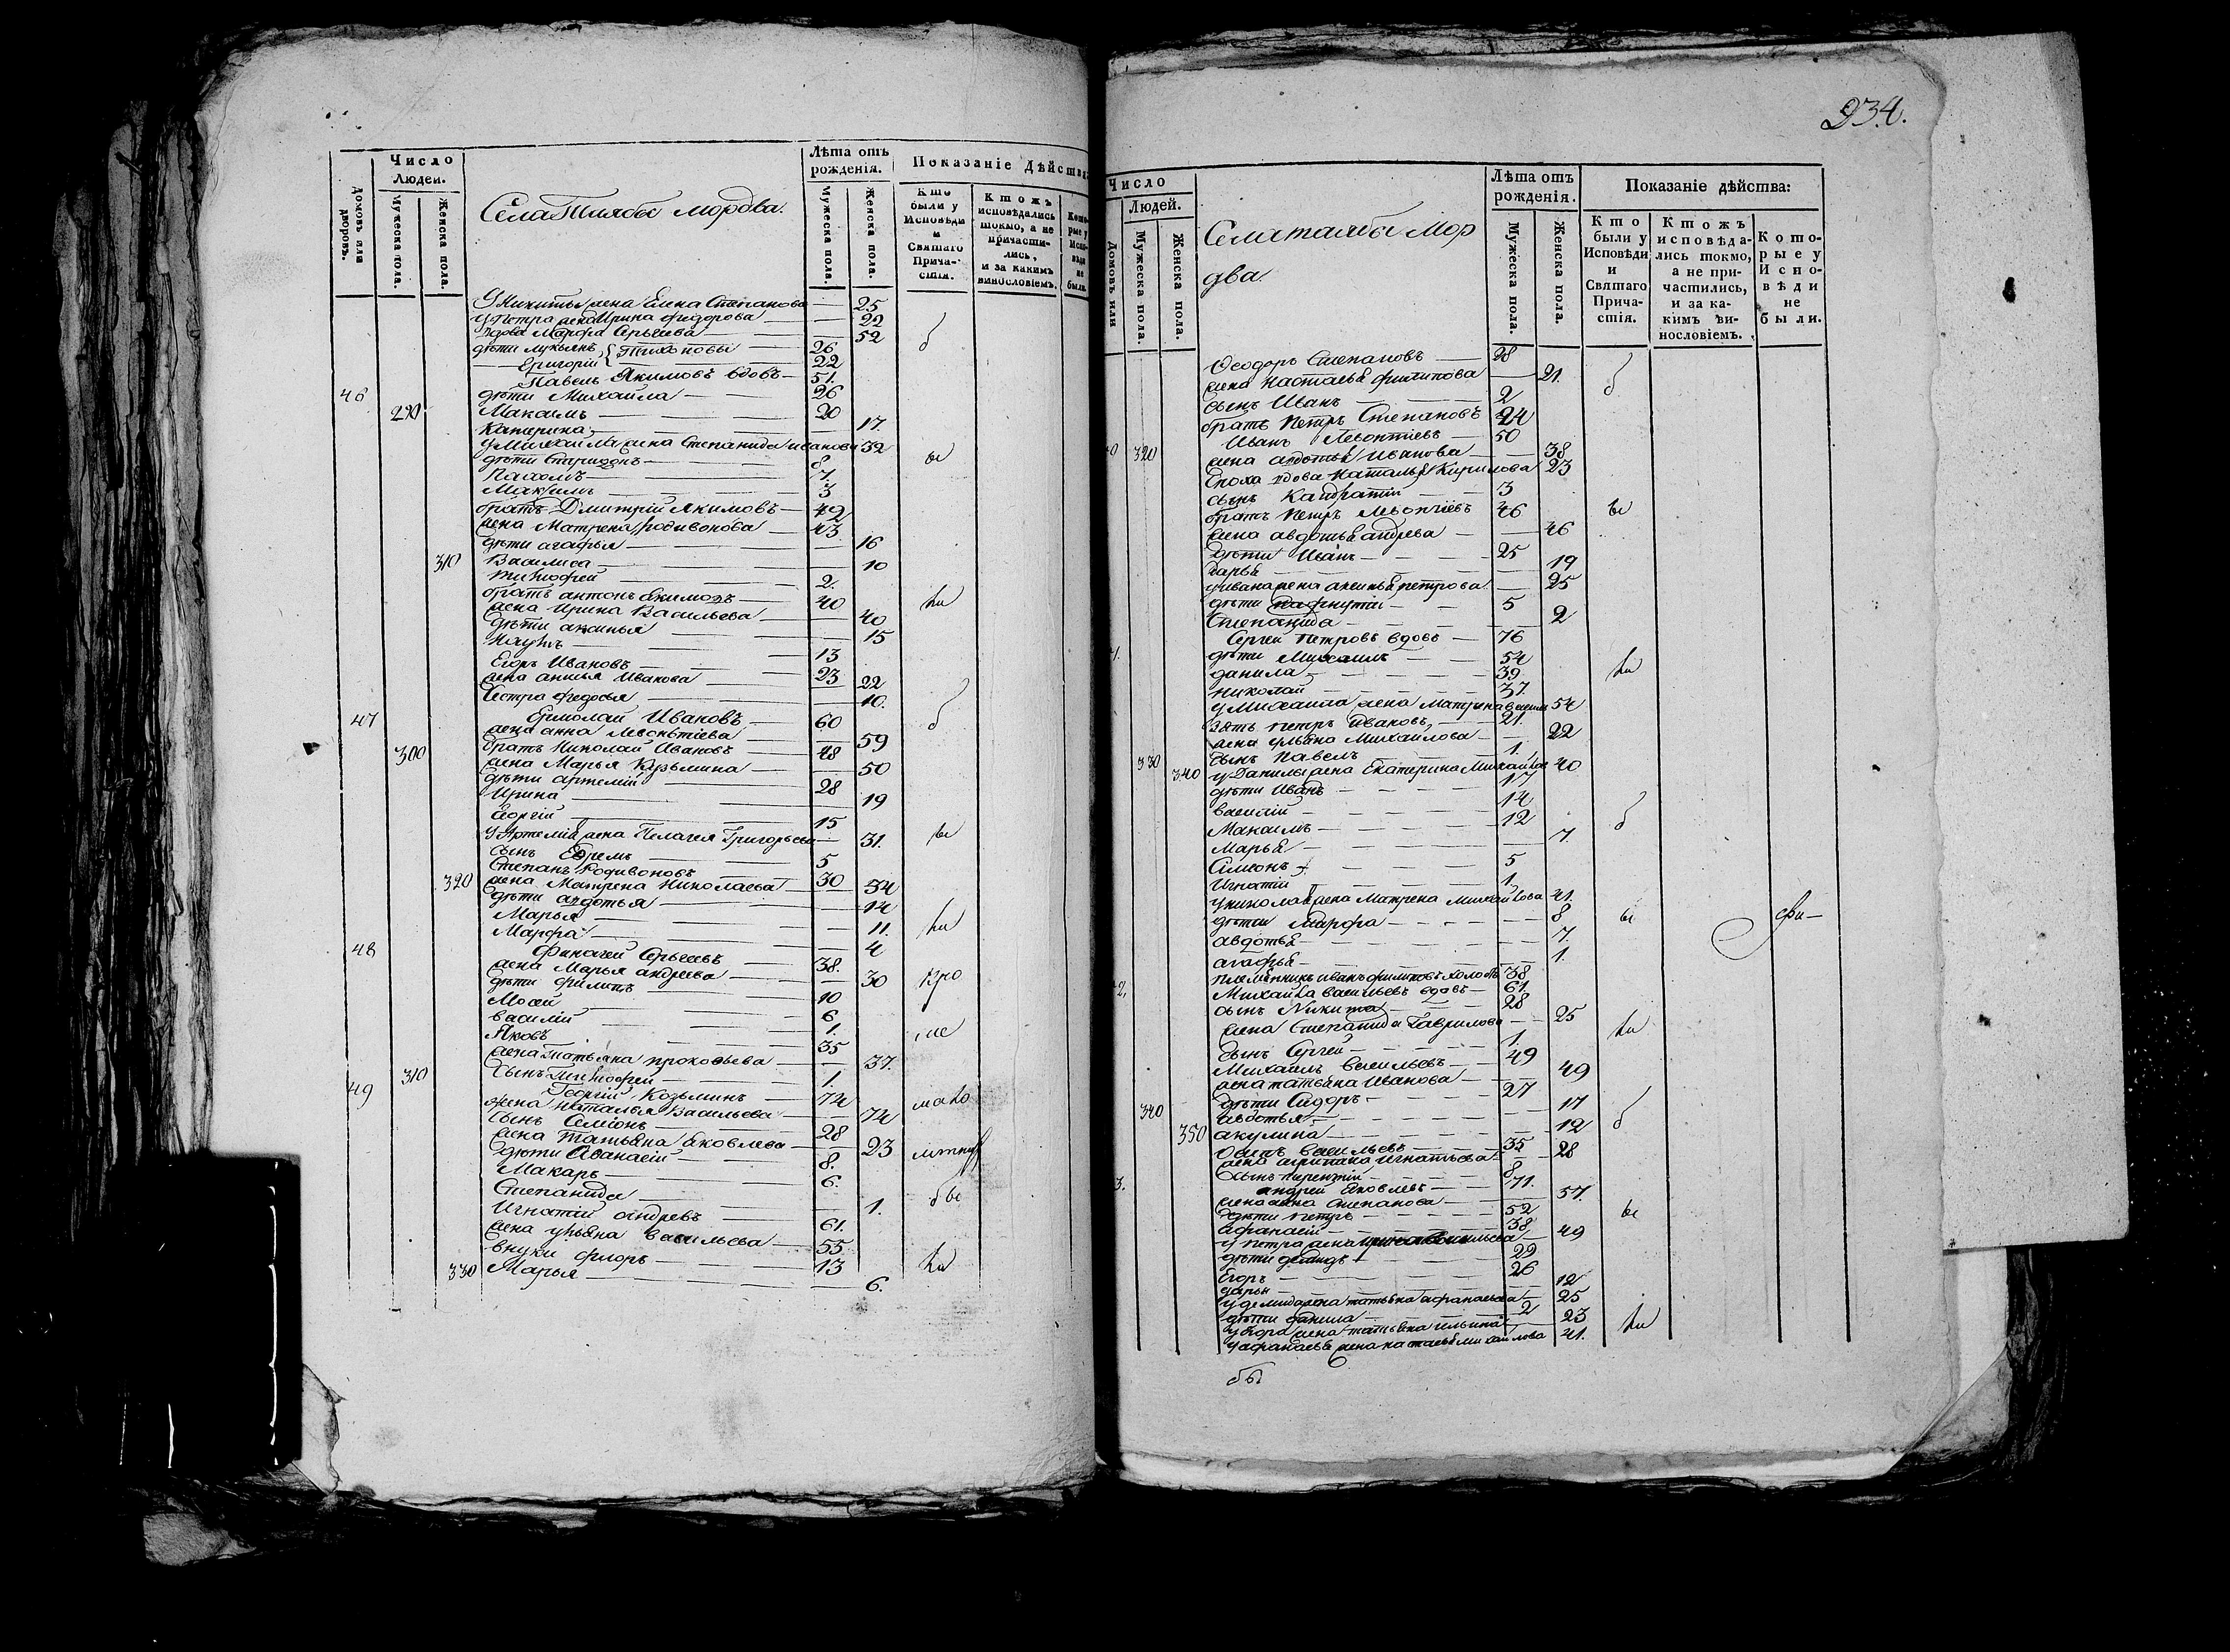 Число
Людей.
Домовъ или дворовъ.
Мужеска пола.
Женска пола.
Села Тимбы мордва.
Лѣта отъ рожденія.
Мужеска пола.
Женска пола.
Показаніе Дѣйства:
Кто были у Исповѣди и Святаго Прича-стія.
Ктожъ исповѣдались токмо, а не причасти-лись, и за какимъ винословіемъ.
Кото-рые у Испо-вѣди не были.
У Никиты жена Елена Степанова — 25
У Петра жена Ирина Федорова — 22
вдова Марфа Сергѣева — 52
дѣти Лукьянъ 26
Григорій 22
46 Павелъ Якимовъ вдовъ — 51.
дѣти Михайла — 26
290 Максимъ — 20
Катерина — 17.
У Михайлы жена Степанида Иванова 32
дѣти Спиридонъ — 8
Пахомъ — 7.
Максимъ — 3
братъ Дмитрій Якимовъ — 49
жена Матрена Родивонова — 43
дѣти агафья — 16
310 Василиса — 10
Тимофей — 2.
братъ антонъ Якимовъ — 40
жена Ирина Васильева — 40
дѣти аксинья — 15
Наумъ — 13
Егоръ Ивановъ — 23
жена анисья Иванова — 22
Сестра федосья — 10.
47 Ермолай Ивановъ — 60
жена анна Левонтіева — 59
300 братъ Николай Ивановъ — 48
жена Марья Кузьмина — 50
дѣти артемій — 28
Ирина — 19
Георгій — 15
У Артемія жена Пелагея Григорьева 31.
сынъ Ефремъ — 5
Степанъ Родивоновъ — 30
320 жена Матрена Николаева — 34
дѣти авдотья — 14
Марья — 11.
Марфа — 4
48 Сергѣевъ — 38.
жена Марья андреева — 30
дѣти филипъ — 10
Мосей — 6
василій — 1.
Яковъ — 35
жена Татьяна прокофьева — 37.
310 Сынъ Тимофей — 1.
49 Георгій Козьминъ — 74
жена Наталья Васильева — 74
Сынъ Семіонъ — 28
жена Татьяна Яковлева — 23
дѣти Аѳанасій — 8.
Макаръ — 6.
Степанида — 1.
Игнатій андревъ — 61.
жена ульяна васильева — 55
внуки флоръ — 13
330 Марья — 6.
234.
Число
Людей.
Домовъ или
Мужеска пола.
Женска пола.
Мор
два.
Лѣта отъ рожденія.
Мужеска пола.
Женска пола.
Показаніе дѣйства:
Кто были у Исповѣди и Святаго Прича-стія.
Ктожъ исповѣда-лись токмо, а не при-частились, и за ка-кимъ ви-нословіемъ.
Кото-рые у Испо-вѣди не были.
Феодоръ Степановъ — 28
жена Настасья филипова — 21.
сынъ Иванъ — 2
братъ Петръ Степановъ 24
0 320 Иванъ Левонтіевъ — 50
жена авдотья Иванова — 38
Сноха вдова Наталья Кирилова 23
сынъ Кандратій — 3
братъ Петръ Левонтіевъ 46
жена авдотья андрева — 46
дѣти Иванъ — 25
Дарья — 19
у ивана жена аксинья петрова — 25
дѣти пафнутій — 5
Степанида — 2
1. Сергей петровъ вдовъ — 76
дѣти Михаилъ — 54
данила — 39
Николай — 37.
у Михаила жена Матрена 54
зять петръ Ивановъ — 21.
жена ульяна Михаилова — 22
330 сынъ Павелъ — 1.
340 у Данилы жена Екатерина 40
дѣти Иванъ — 17
василій — 14
Максимъ — 12
Марья — 7.
Симіонъ — 5
Игнатій — 1
у николая жена Матрена Михайлова 41.
дѣти Марфа — 8
авдотья — 7.
агафья — 1.
племянникъ иванъ филиповъ холостъ 38
2. Михайла васильевъ вдовъ — 61.
сынъ Никита — 28
жена Степанида Гаврилова — 25
Сынъ Сергей — 1
Михаилъ Васильевъ — 49
жена татьяна Иванова — 49
340 дѣти Сидоръ — 27
авдотья — 17
350 акулина — 12
Осипъ васильевъ — 35
жена агрипина игнатьева — 28
Сынъ терентій — 8
3. андрей Яковлевъ — 71.
жена анна Степанова — 57.
дѣти петръ — 52
афанасій — 38
у петра жена — 49
дѣти демидъ — 29
Егоръ — 26
дарья — 12
у демида жена татьяна афанасьева — 25
дѣти данила — 2
у Егора жена татьяна ильина — 23
у афанасья жена настасья михайлова 41.